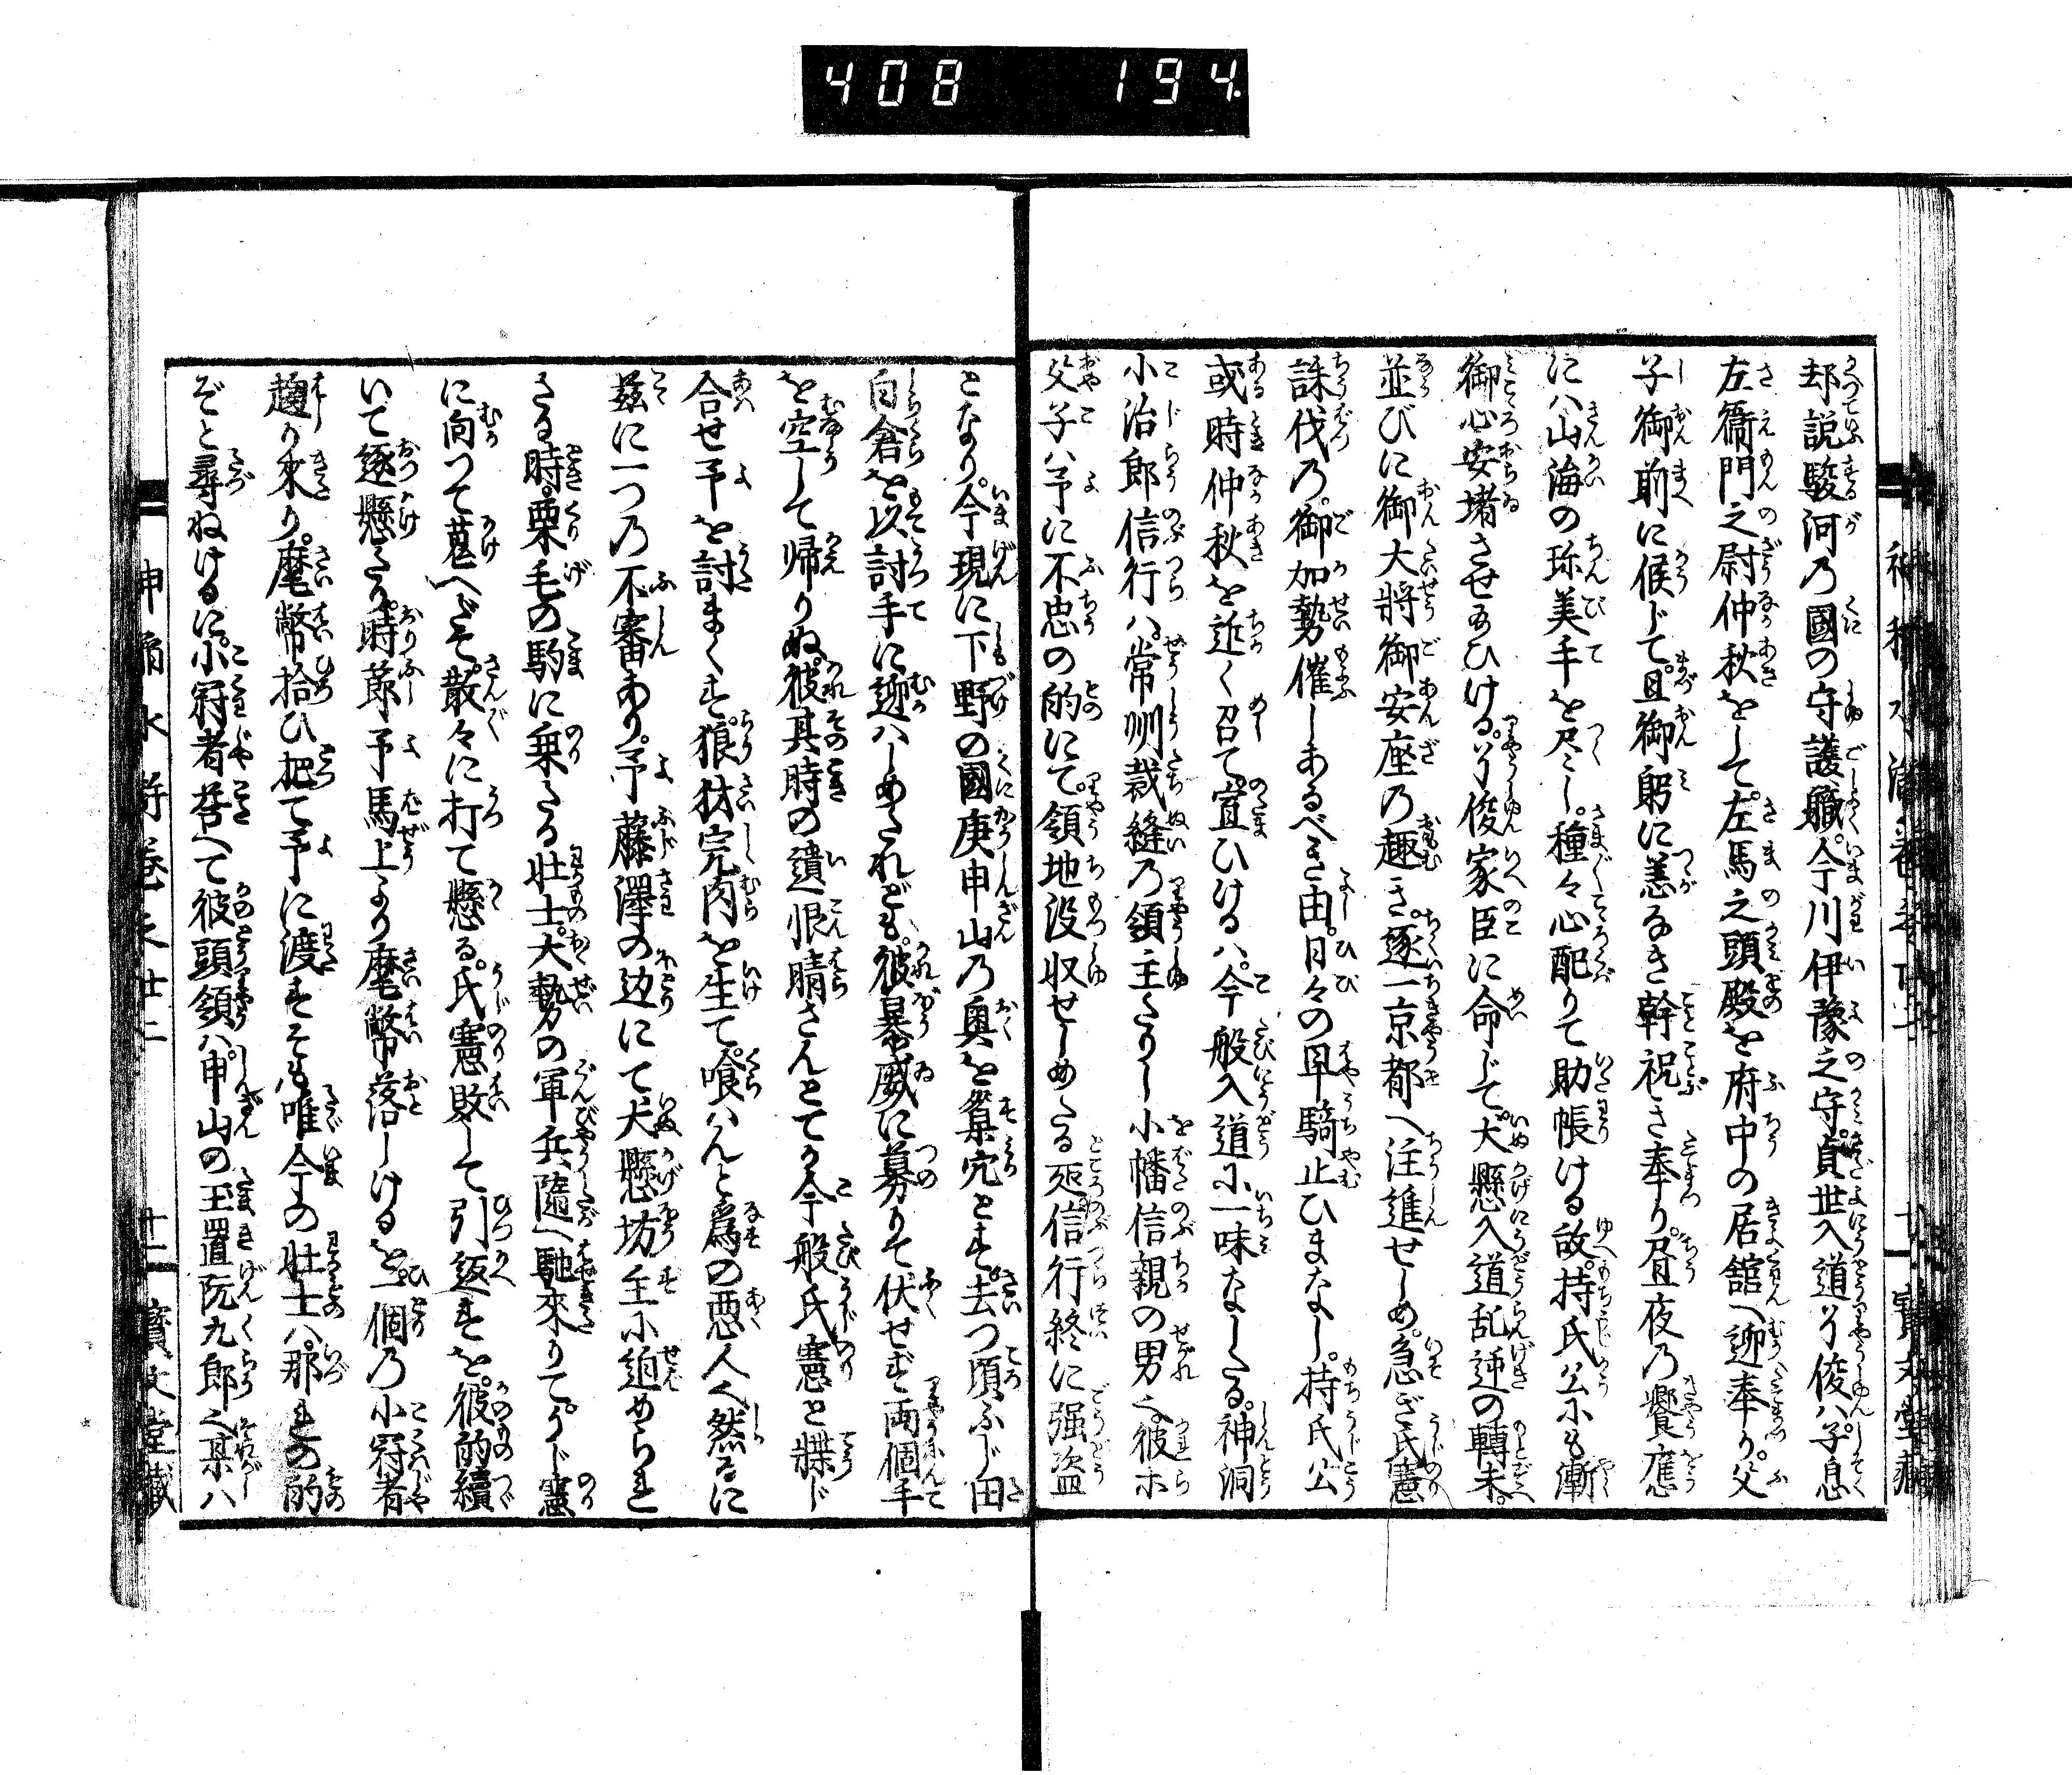 408 194
却説駿河乃國の守護職。今川伊豫之守貞世入道了俊ハ。子息
左衞門之尉仲秋をして。左馬之頭殿を府中の居舘へ迎奉り。父
子御前に候じて。且御躬に恙なき幹祝き奉り。昼夜乃饗應
にハ山海の珎美手を尽し。種々心配りて助帳ける故。持氏公にも漸
御心安堵させ玉ひける。了俊家臣に命じて。犬懸入道乱逆の轉末。
並びに御大將御安座乃趣き。逐一京都へ注進せしめ。急ぎ氏憲
誅伐乃。御加勢催しあるべき由。日々の早騎止ひまなし。持氏公
或時仲秋を近く召て宣ひけるハ。今般入道に一味なしたる。神洞
小治郎信行ハ。常州裁縫乃領主たりし小幡信親の男也。彼ホ
父子ハ予に不忠の的にて。領地没収せしめたる処。信行終に强盗
となり。今現に下野の國庚申山乃奥を巣穴とす。去つ頃ふじ田
白倉を以討手に迎ハしめたれども。彼暴威に募りて伏せず。両個手
を空して帰りぬ。彼其時の遺恨晴さんとてか。今般氏憲と牒じ
合せ予を討まくす。狼豺完肉を生て。喰ハんと爲の悪人也。然るに
茲に一つ乃不審あり。予藤澤の辺にて犬懸坊主に迫められ
さる時。栗毛の駒に乗たる壮士。大勢の軍兵隨へ馳來りて。うぢ憲
に向つて蒐へだて。散々に打て懸る。氏憲敗して引返すを。彼的續
いて逐懸たり。時節予馬上より麾幣落しけるを。一個乃小冠者
趨り來り。麾幣拾ひ把て予に渡す。そも唯今の壮士ハ。那里の的
ぞと尋ねけるに。小冠者答へて彼頭領ハ。申山の玉置阮九郎也。某ハ
十二 寳文堂藏